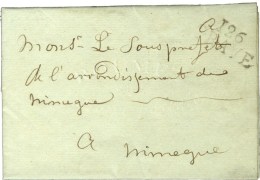 Monsr Le Sous prefet
de l'arrondissement de
nimegue
A
nimegue